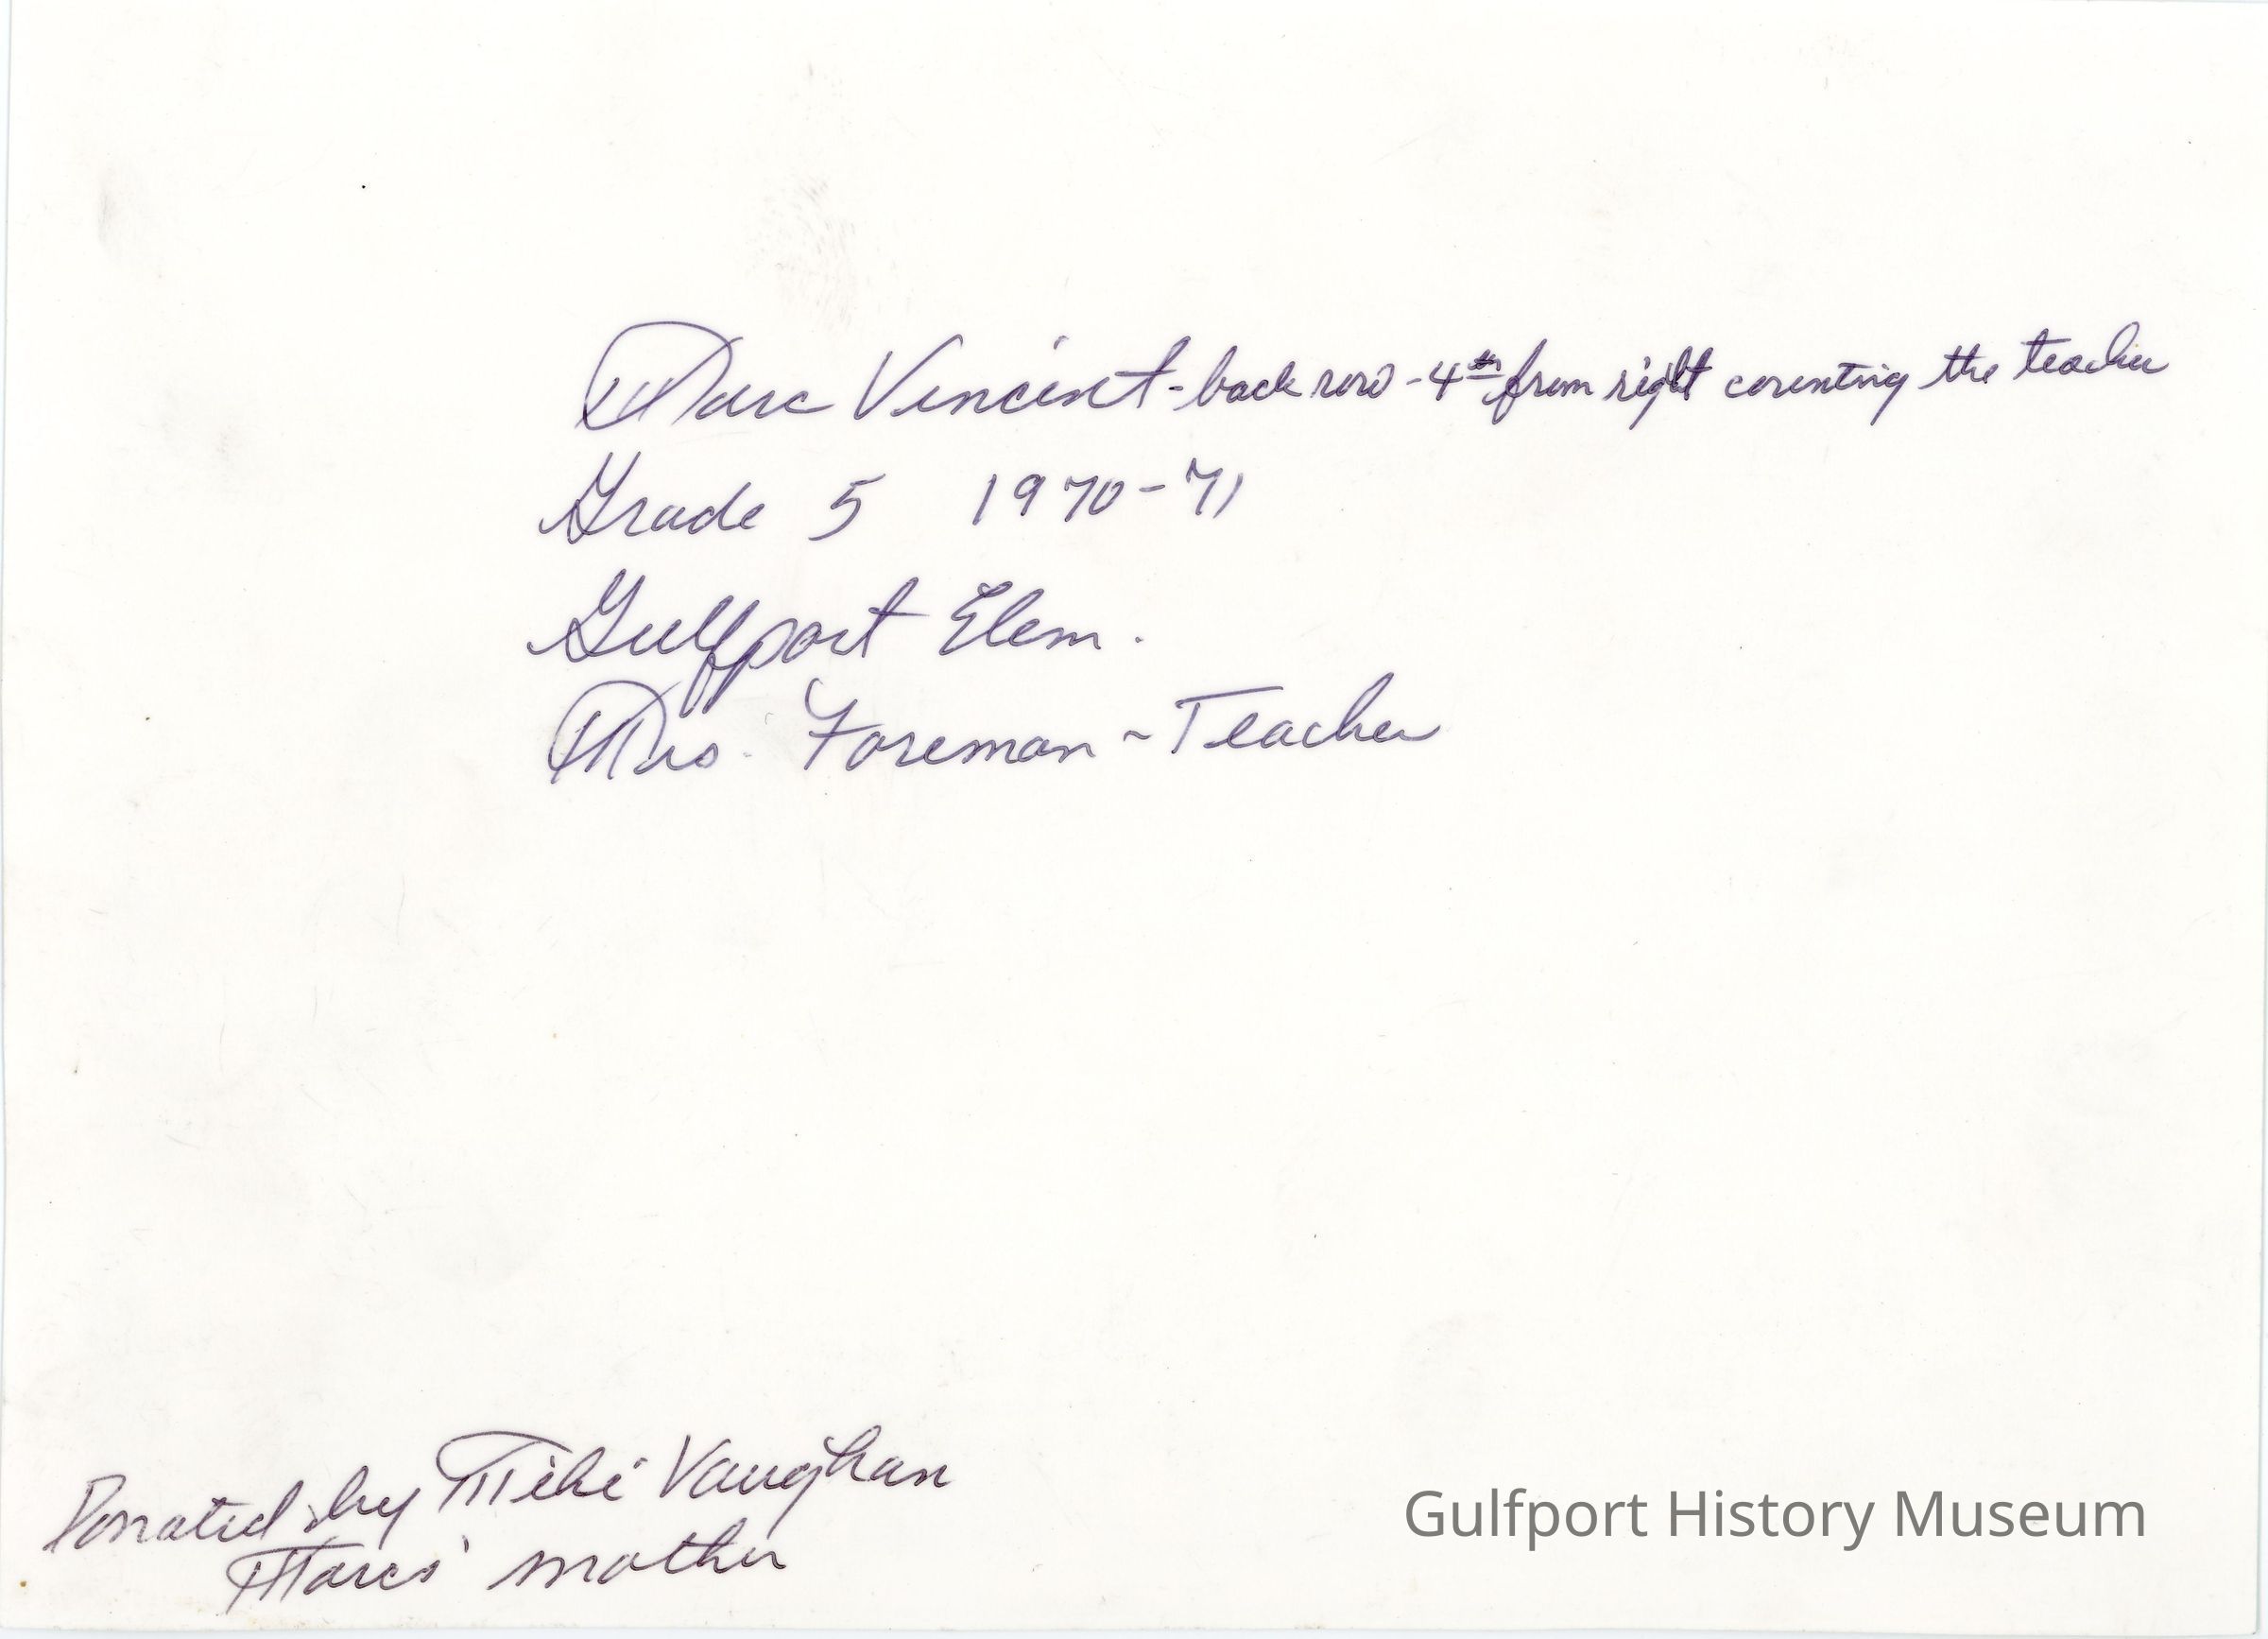 Marc Vincent - back row - 4th from right counting the teacher
Grade 5 1970-71
Gulfport Elem.
Mrs. Foreman ~ Teacher
Donated by Miki Vaughan
Marcs' mother
Gulfport History Museum